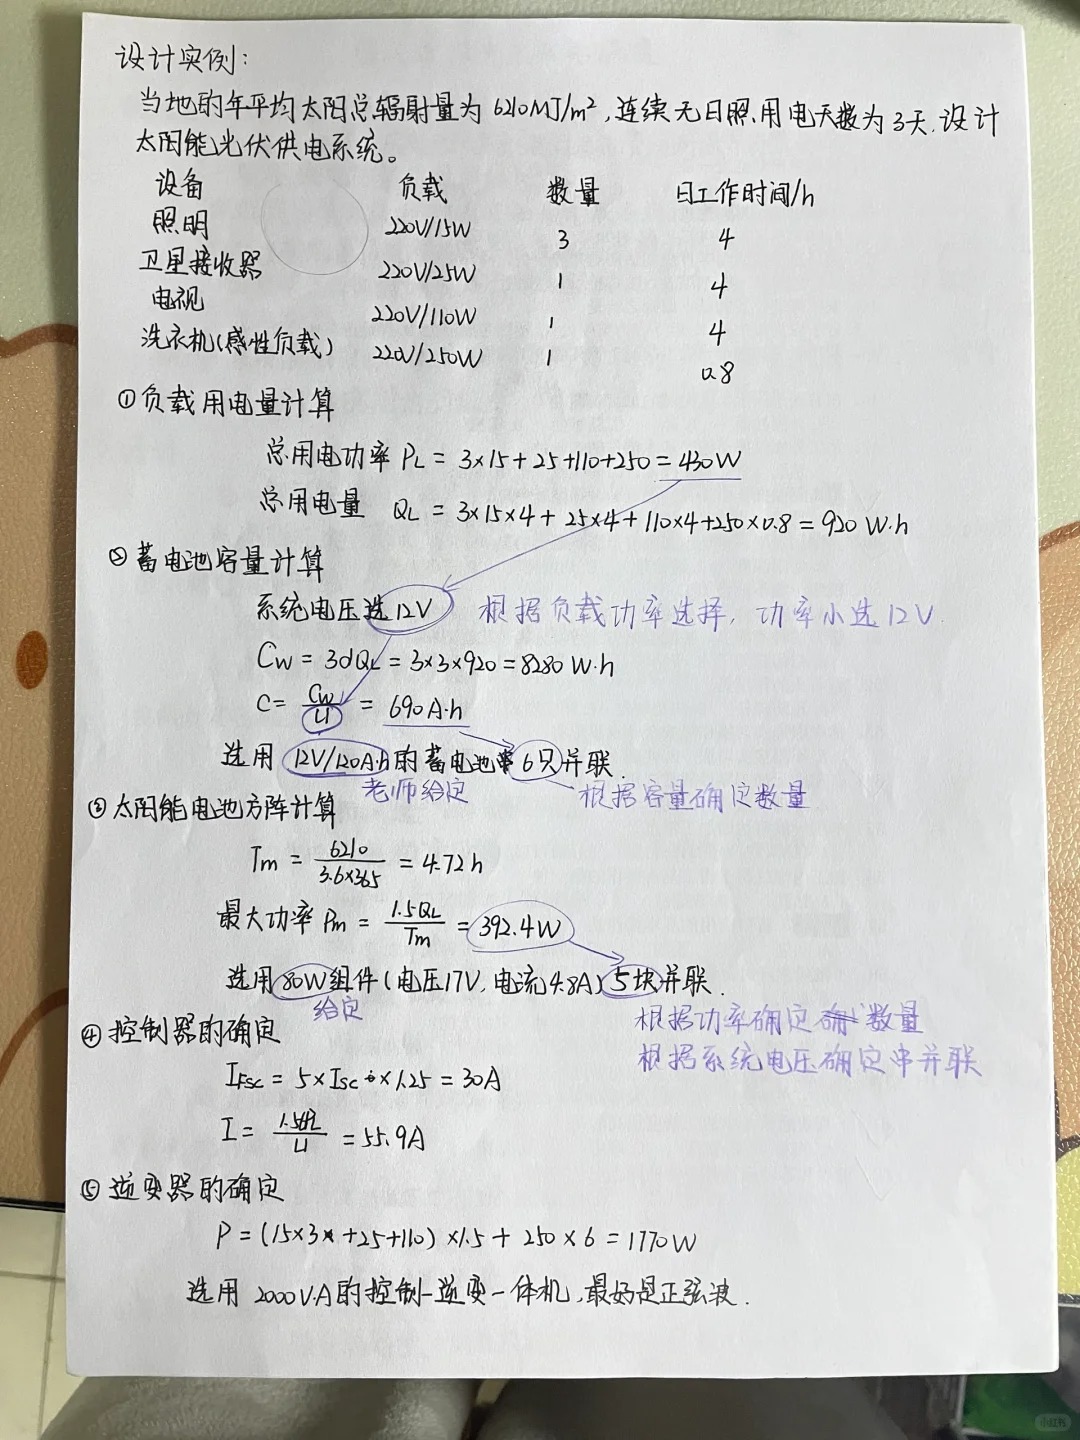 设计实例:
当地的年平均太阳总辐射量为6210MJ/m²,连续无日照用电天数为3天.设计
太阳能光伏供电系统。
设备 负载 数量 日工作时间/h
照明 220V/15W 3 4
卫星接收器 220V/25W 1 4
电视 220V/110W 1 4
洗衣机(感性负载) 220V/250W 1 0.8
①负载用电量计算
总用电功率 PL = 3×15+25+110+250=430W
总用电量 QL = 3×15×4+25×4+110×4+250×0.8=920 W·h
②蓄电池容量计算
系统电压选12V 根据负载功率选择,功率小选12V.
Cw = 3dQL = 3×3×920 = 8280 W·h
C= Cw/U = 690A·h
选用 12V/120A·h的蓄电池 6只并联.
老师给定 根据容量确定数量
③太阳能电池方阵计算
Tm = 6210/3.6×365 = 4.72h
最大功率 Pm = 1.5QL/Tm = 392.4W
选用80W组件(电压17V,电流4.8A)5块并联.
给定 根据功率确定数量
根据系统电压确定串并联
④控制器的确定
IFsc = 5×Isc×1.25 = 30A
I= /U =55.9A
⑤逆变器的确定
P=(15×3+25+110)×1.5+250×6=1770W
选用2000V.A的控制-逆变一体机,最好是正弦波.
小红书